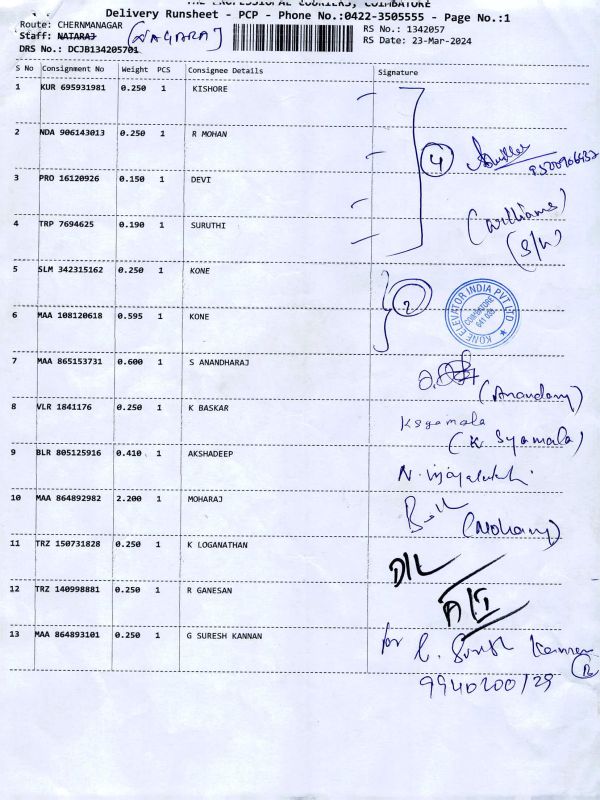 THE PROFESSIONAL COURIERS, COIMBATORE
Delivery Runsheet - PCP - Phone No.:0422-3505555 - Page No.:1
Route: CHERNMANAGAR
RS No.: 1342057
Staff: NATARAJ (NAGARAJ)
RS Date: 23-Mar-2024
DRS No.: DCJB134205701
S No Consignment No Weight PCS Consignee Details Signature
1 KUR 695931981 0.250 1 KISHORE
2 NDA 906143013 0.250 1 R MOHAN
4
3 PRO 16120926 0.150 1 DEVI
(Williams)
4 TRP 7694625 0.190 1 SURUTHI
(S/W)
5 SLM 342315162 0.250 1 KONE
2
KONE ELEVATOR INDIA PVT LTD
COIMBATORE
6 MAA 108120618 0.595 1 KONE
7 MAA 865153731 0.600 1 S ANANDHARAJ
(Anandan)
8 VLR 1841176 0.250 1 K BASKAR
Ksyamala
(K. Syamala)
9 BLR 805125916 0.410 1 AKSHADEEP
10 MAA 864892982 2.200 1 MOHARAJ
11 TRZ 150731828 0.250 1 K LOGANATHAN
D/L
12 TRZ 140998881 0.250 1 R GANESAN
13 MAA 864893101 0.250 1 G SURESH KANNAN
for G. Suresh Kannan